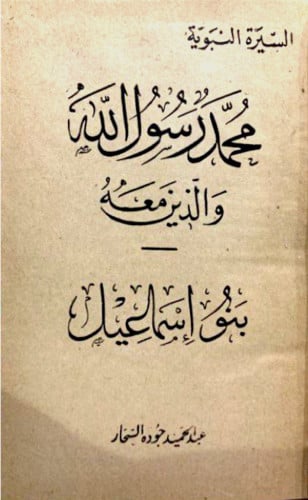 السيرة النبوية
محمد رسول الله
والذين معه
بنو إسماعيل
عبد الحميد جودة السحار